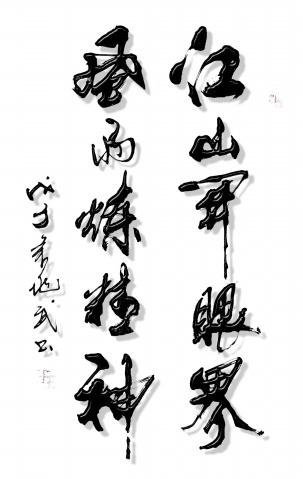 江山开眼界
风雨炼精神
戊子年 武书